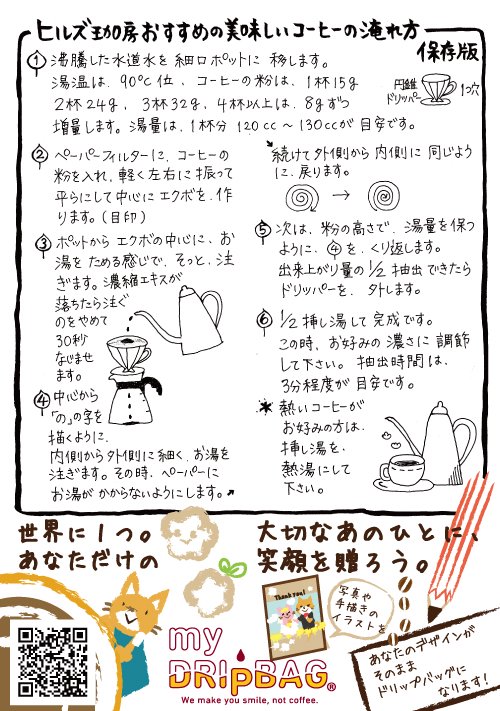 ヒルズ珈房おすすめの美味しいコーヒーの淹れ方
保存版
① 沸騰した水道水を細口ポットに移します。
湯温は、90℃位、コーヒーの粉は、1杯15g
2杯24g、3杯32g、4杯以上は、8gずつ
増量します。湯量は、1杯分120cc〜130ccが目安です。
円錐
ドリッパー
1つ穴
② ペーパーフィルターに、コーヒーの
粉を入れ、軽く左右に振って
平らにして中心にエクボを、作
ります。(目印)
③ ポットからエクボの中心に、お
湯をためる感じで、そっと、注
ぎます。濃縮エキスが
落ちたら注ぐ
のをやめて
30秒
なじませ
ます。
④ 中心から
「の」の字を
描くように、
内側から外側に細く、お湯を
注ぎます。その時、ペーパーに
お湯がかからないようにします。
続けて外側から内側に同じよう
に、戻ります。
→
⑤ 次は、粉の高さで、湯量を保つ
ように、④を、くり返します。
出来上がり量の1/2抽出できたら
ドリッパーを、外します。
⑥ 1/2挿し湯して完成です。
この時、お好みの濃さに調節
して下さい。抽出時間は、
3分程度が目安です。
* 熱いコーヒーが
お好みの方は、
挿し湯を、
熱湯にして
下さい。
世界に1つ。
あなただけの
大切なあのひとに、
笑顔を贈ろう。
Thank you!
写真や
手描きの
イラストを
my
DRIPBAG®
We make you smile, not coffee.
あなたのデザインが
そのまま
ドリップバッグに
なります!